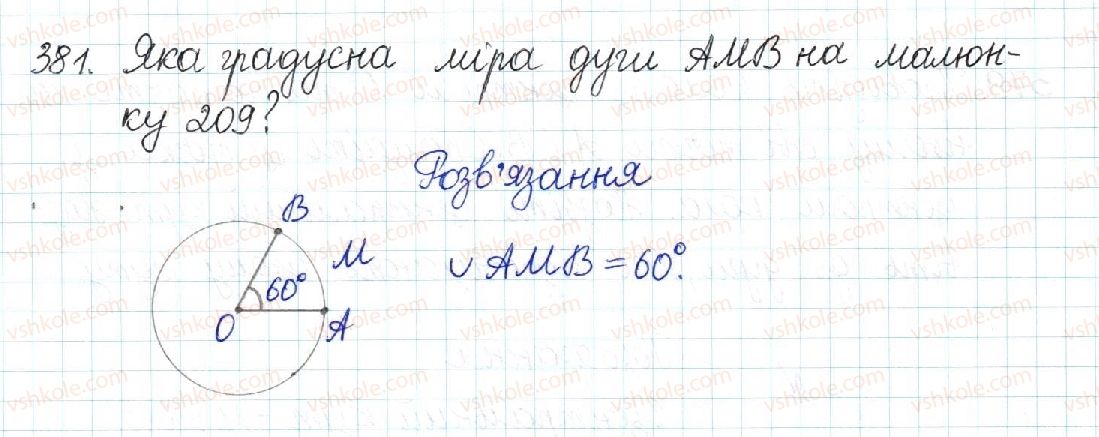 381. Яка градусна міра дуги АМВ на малюн-
ку 209?
Розв'язання
В
М
60°
О
А
∪ АМВ = 60°.
vshkole.com